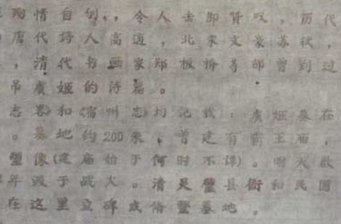 殉情自刎,令人击卸贊叹,历代
唐代诗人高适,北宋文豪苏轼,
,清代书画家郑板桥等都曾到过
吊虞姬的诗篇。
志》和《宿州志》均记载:虞姬墓在
。墓地约200米,曾建有霸王庙,
塑像(建庙始于何时不详)。明天启
年毁于战火。清灵璧县衙和民国
在这里立碑或修整墓地。